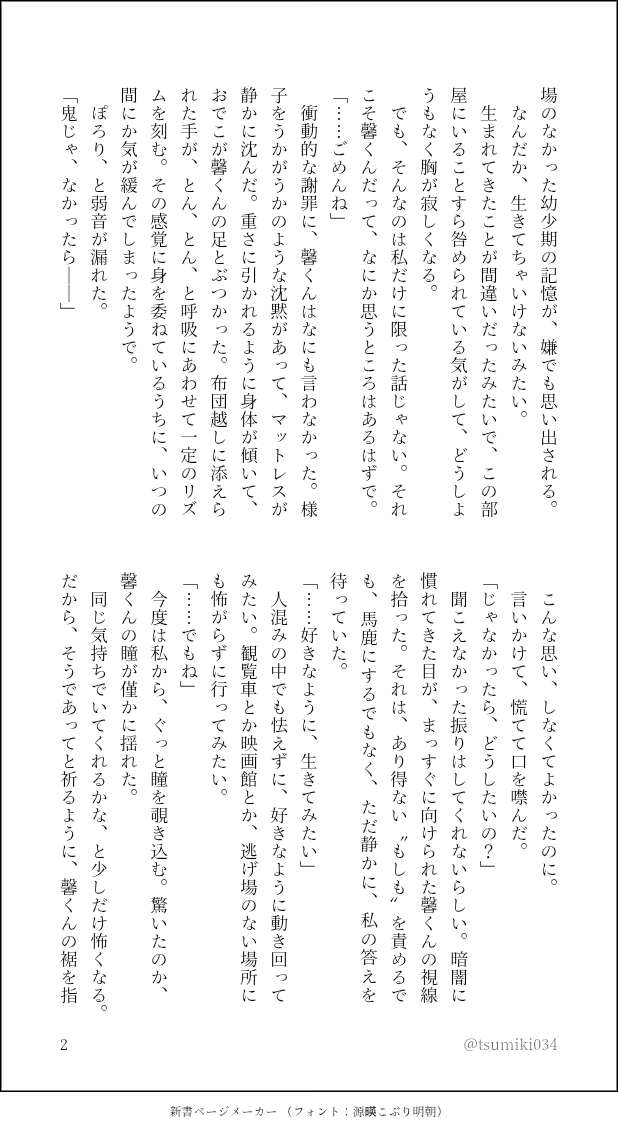 場のなかった幼少期の記憶が、嫌でも思い出される。
なんだか、生きてちゃいけないみたい。
生まれてきたことが間違いだったみたいで、この部
屋にいることすら咎められている気がして、どうしよ
うもなく胸が寂しくなる。
でも、そんなのは私だけに限った話じゃない。それ
こそ馨くんだって、なにか思うところはあるはずで。
「……ごめんね」
衝動的な謝罪に、馨くんはなにも言わなかった。様
子をうかがうかのような沈黙があって、マットレスが
静かに沈んだ。重さに引かれるように身体が傾いて、
おでこが馨くんの足とぶつかった。布団越しに添えら
れた手が、とん、とん、と呼吸にあわせて一定のリズ
ムを刻む。その感覚に身を委ねているうちに、いつの
間にか気が緩んでしまったようで。
ぽろり、と弱音が漏れた。
「鬼じゃ、なかったら――」
こんな思い、しなくてよかったのに。
言いかけて、慌てて口を噤んだ。
「じゃなかったら、どうしたいの？」
聞こえなかった振りはしてくれないらしい。暗闇に
慣れてきた目が、まっすぐに向けられた馨くんの視線
を拾った。それは、あり得ない〝もしも〟を責めるで
も、馬鹿にするでもなく、ただ静かに、私の答えを
待っていた。
「……好きなように、生きてみたい」
人混みの中でも怯えずに、好きなように動き回って
みたい。観覧車とか映画館とか、逃げ場のない場所に
も怖がらずに行ってみたい。
「……でもね」
今度は私から、ぐっと瞳を覗き込む。驚いたのか、
馨くんの瞳が僅かに揺れた。
同じ気持ちでいてくれるかな、と少しだけ怖くなる。
だから、そうであってと祈るように、馨くんの裾を指
2
@tsumiki034
新書ページメーカー（フォント：源暎こぶり明朝）